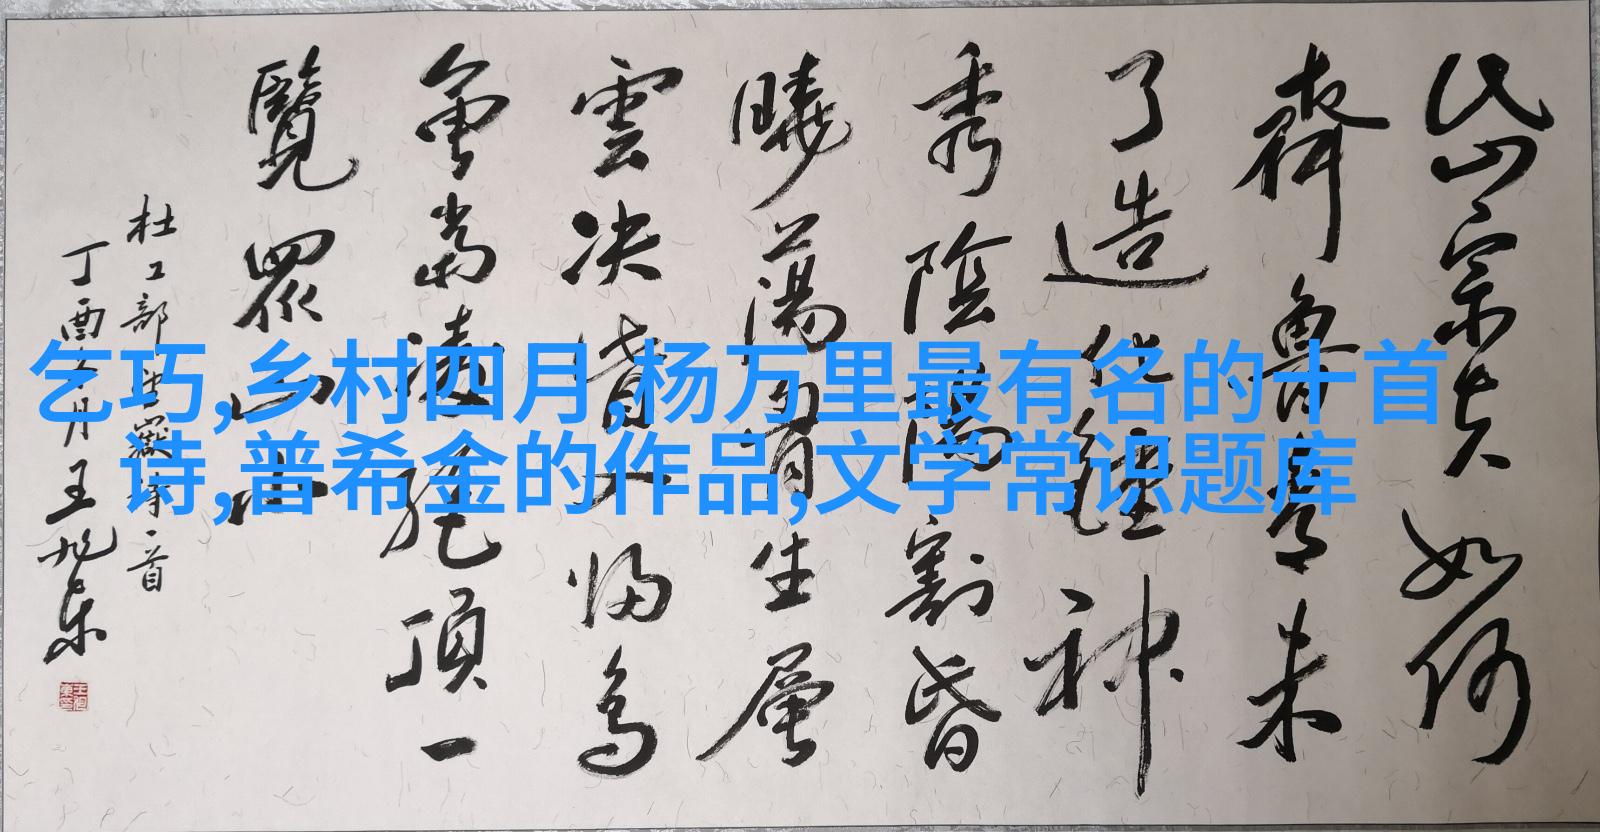 岱宗夫如何
齊魯青未
了造化鍾神
秀陰陽割昏
曉蕩胸生層
雲決眥入歸鳥
會當凌絕頂一
覽眾山小
杜工部望嶽詩一首
丁酉年月王旭東
乞巧,乡村四月,杨万里最有名的十首
诗,普希金的作品,文学常识题库